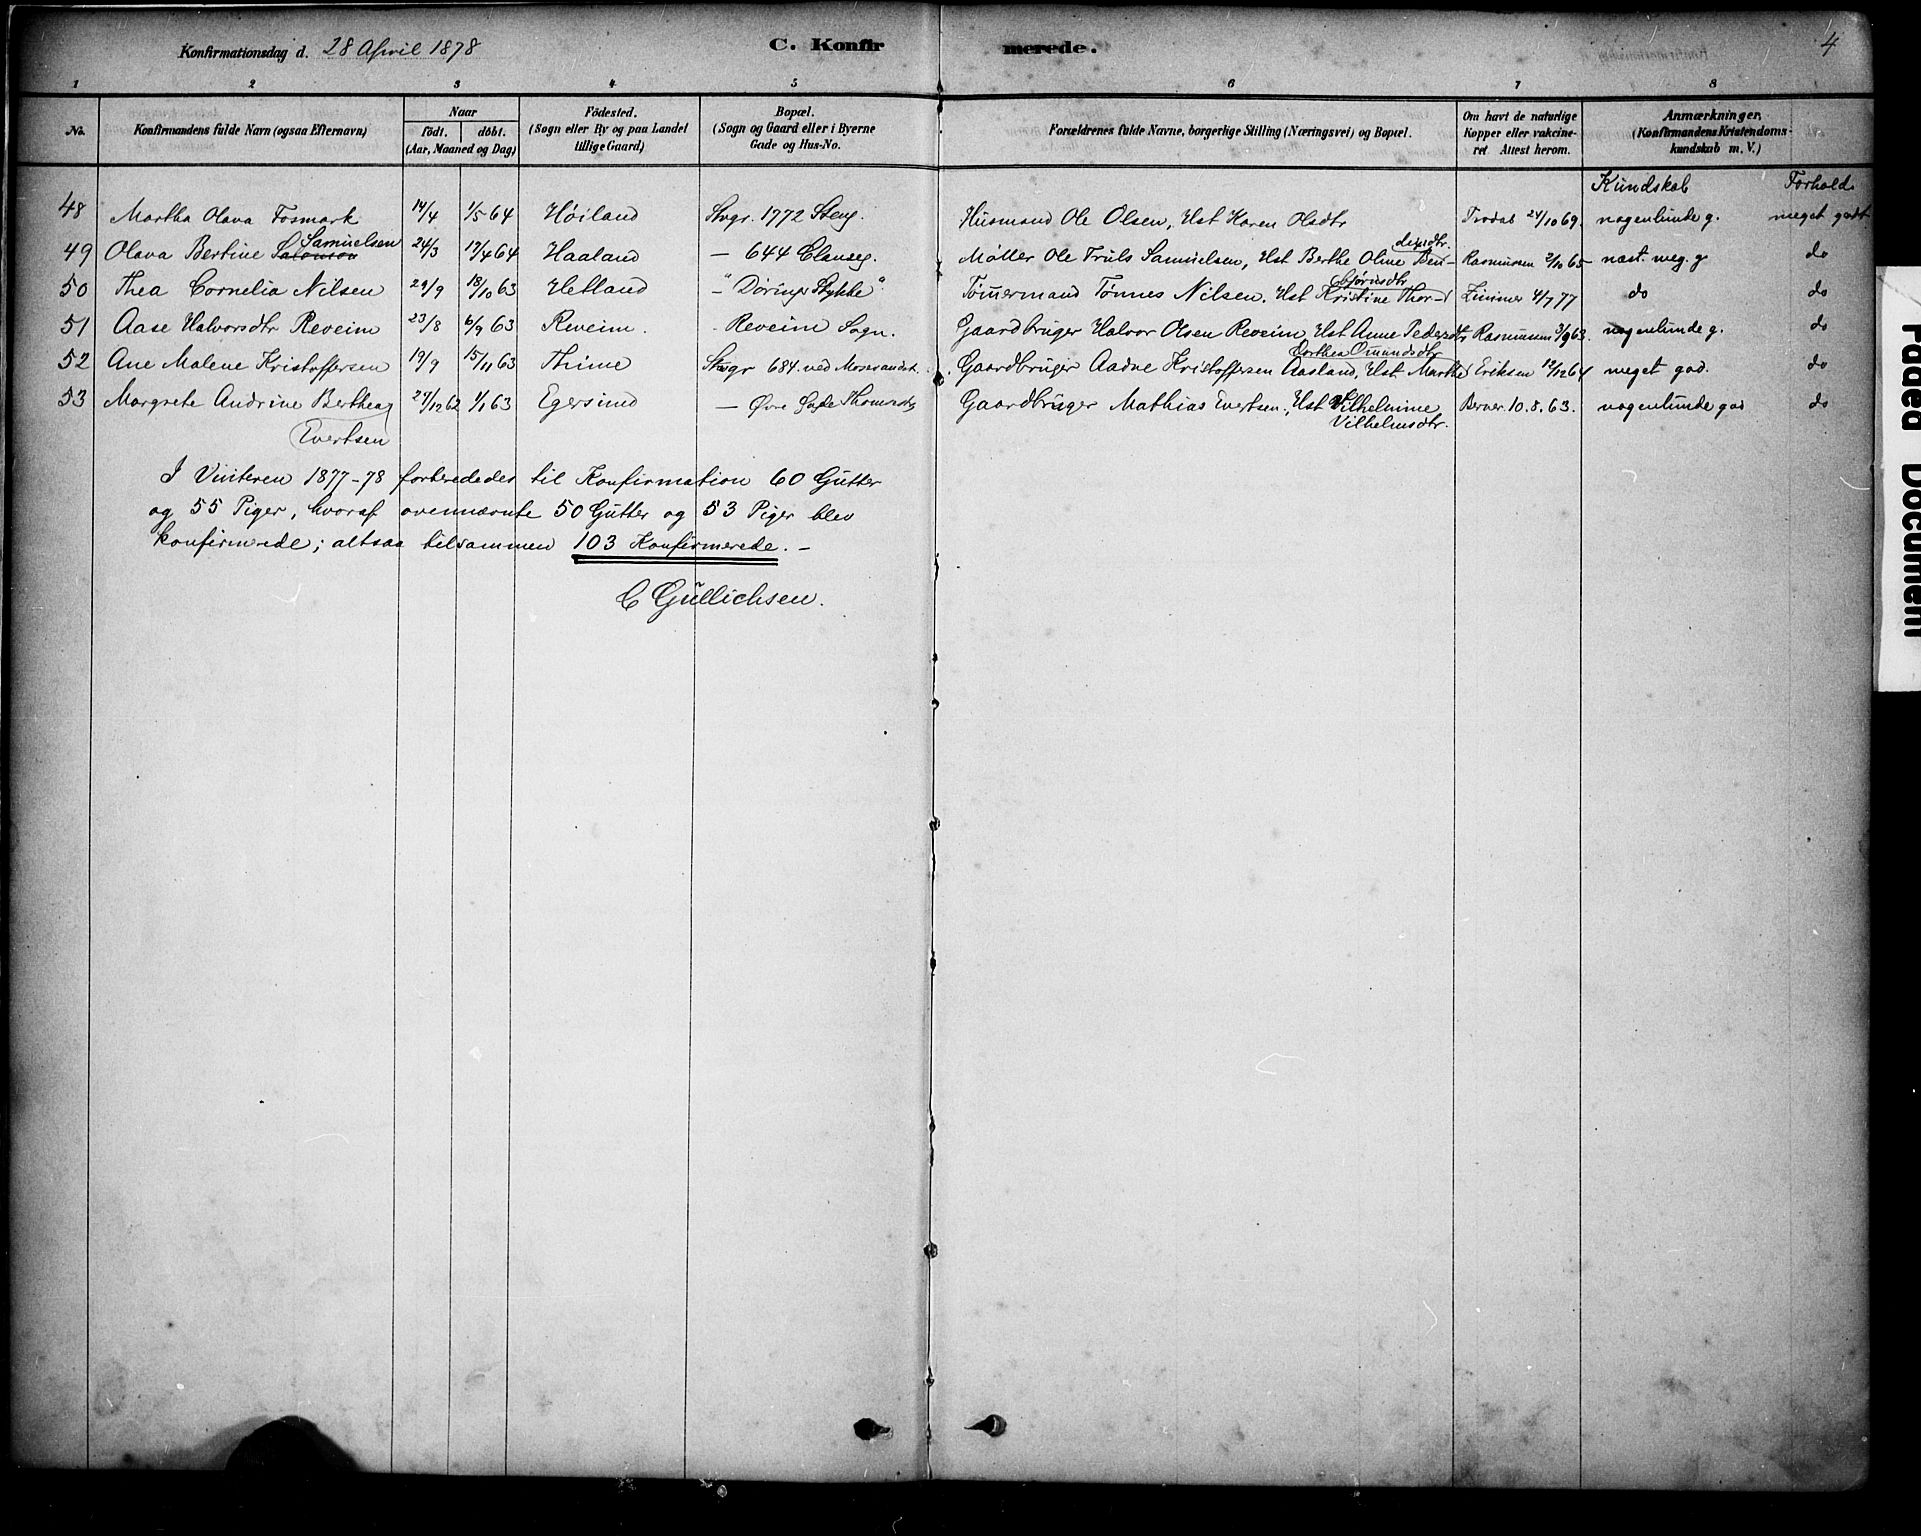 Konfirmationsdag d. 28 April 1878
C. Konfirmerede.
4
1 2 3 4 5 6 7 8
No.
Konfirmandens fulde Navn (ogsaa Efternavn)
Naar
födt. döbt.
(Aar, Maaned og Dag)
Födested.
(Sogn eller By og paa Landet
tillige Gaard)
Bopæl.
(Sogn og Gaard eller i Byerne
Gade og Hus-No.
Forældrenes fulde Navne, borgerlige Stilling (Næringsvei) og Bopæl.
Om havt de naturlige
Kopper eller vakcine-
ret Attest herom.
Anmærkninger,
(Konfirmandens Kristendoms-
kundskab m. V.)
Kundskab Forhold
48 Martha Olava Fosmark 14/4 1/5 64 Höiland Svgr. 1772 Steng. Husmand Ole Olsen, Hst Karen Olsdtr 24/10 69. nogenlunde g. meget godt
49 Olava Bertine Salomon Samuelsen 24/3 17/4 64 Haaland — 644 Elenseg. Møller Ole Truls Samuelsen, Hst Berthe Oline Ben-
disdtr. Rasmussen 2/10 65 næst. meg. g do
50 Thea Cornelia Nilsen 29/9 18/10 63 Hetland — "Dørings Stykke" Tömmermand Tønnes Nilsen. Hst Kristine Thor-
bjørnsdtr Zimmer 4/7 77 do do
51 Aase Halvorsdtr Reveim 23/8 6/9 63 Reveim. - Reveim Sogn. Gaardbruger Halvor Olsen Reveim Hst Anne Pedersdtr Rasmussen 3/9 63. nogenlunde g. do
52 Ane Malene Kristoffersen 19/9 15/11 63 Thime Svgr 684. ved Mosevandet. Gaardbruger Aadne Kristoffersen Aasland, Hst Marthe
Dorthea Omundsdtr Eriksen 12/12 64 meget god. do
53 Margrete Andrine Berthea 27/12 62 1/1 63 Egersund — Øvre Gade Gaardbruger Mathias Evertsen, Hst Vilhelmine
Evertsen Vilhelmsdtr. Berner. 10. 8. 63. nogenlunde god do
I Vinteren 1877-78 forberededes til Konfirmation 60 Gutter
og 55 Piger, hvoraf ovennævnte 50 Gutter og 53 Piger blev
konfirmerede; altsaa tilsammen 103 Konfirmerede. —
C Gullichsen.
Faded Document